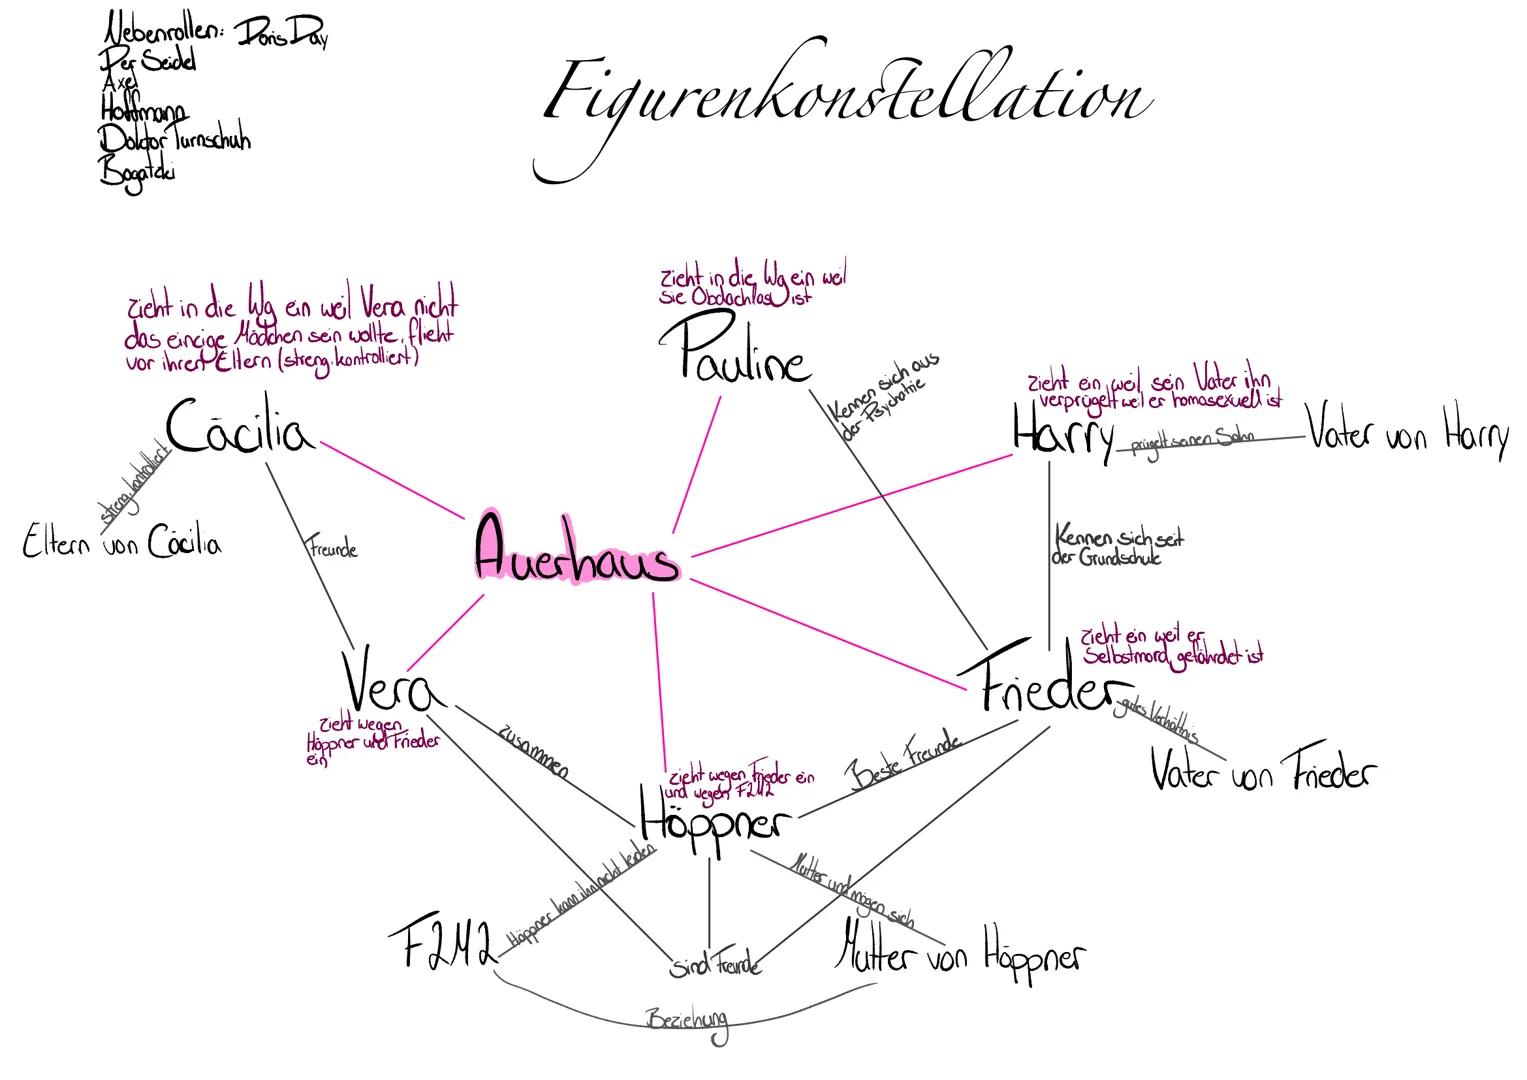 Nebenrollen: Doris Day
Per Seidel
Axel
Hoffmann
Doktor Turnschuh
Bogatzki
Figurenkonstellation
zieht in die Wg ein weil Vera nicht
das einzige Mädchen sein wollte, flieht
vor ihren Eltern (streng, kontrolliert)
Cäcilia
streng, kontrolliert
Eltern von Cäcilia
Freunde
zieht in die Wg ein weil
sie Obdachlos ist
Pauline
Kennen sich aus
der Psychatrie
zieht ein, weil sein Vater ihn
verprügelt weil er homosexuell ist
Harry
prügelt seinen Sohn
Vater von Harry
Auerhaus
Kennen sich seit
der Grundschule
zieht ein weil er
Selbstmord gefährdet ist
Frieder
gutes Verhältnis
Vater von Frieder
Vera
zieht wegen
Höppner und Frieder
ein
zusammen
Beste Freunde
zieht wegen Frieder ein
und wegen F2M2
Höppner
Höppner kann ihn nicht leiden
Mutter und mögen sich
F2M2
sind Freunde
Mutter von Höppner
Beziehung